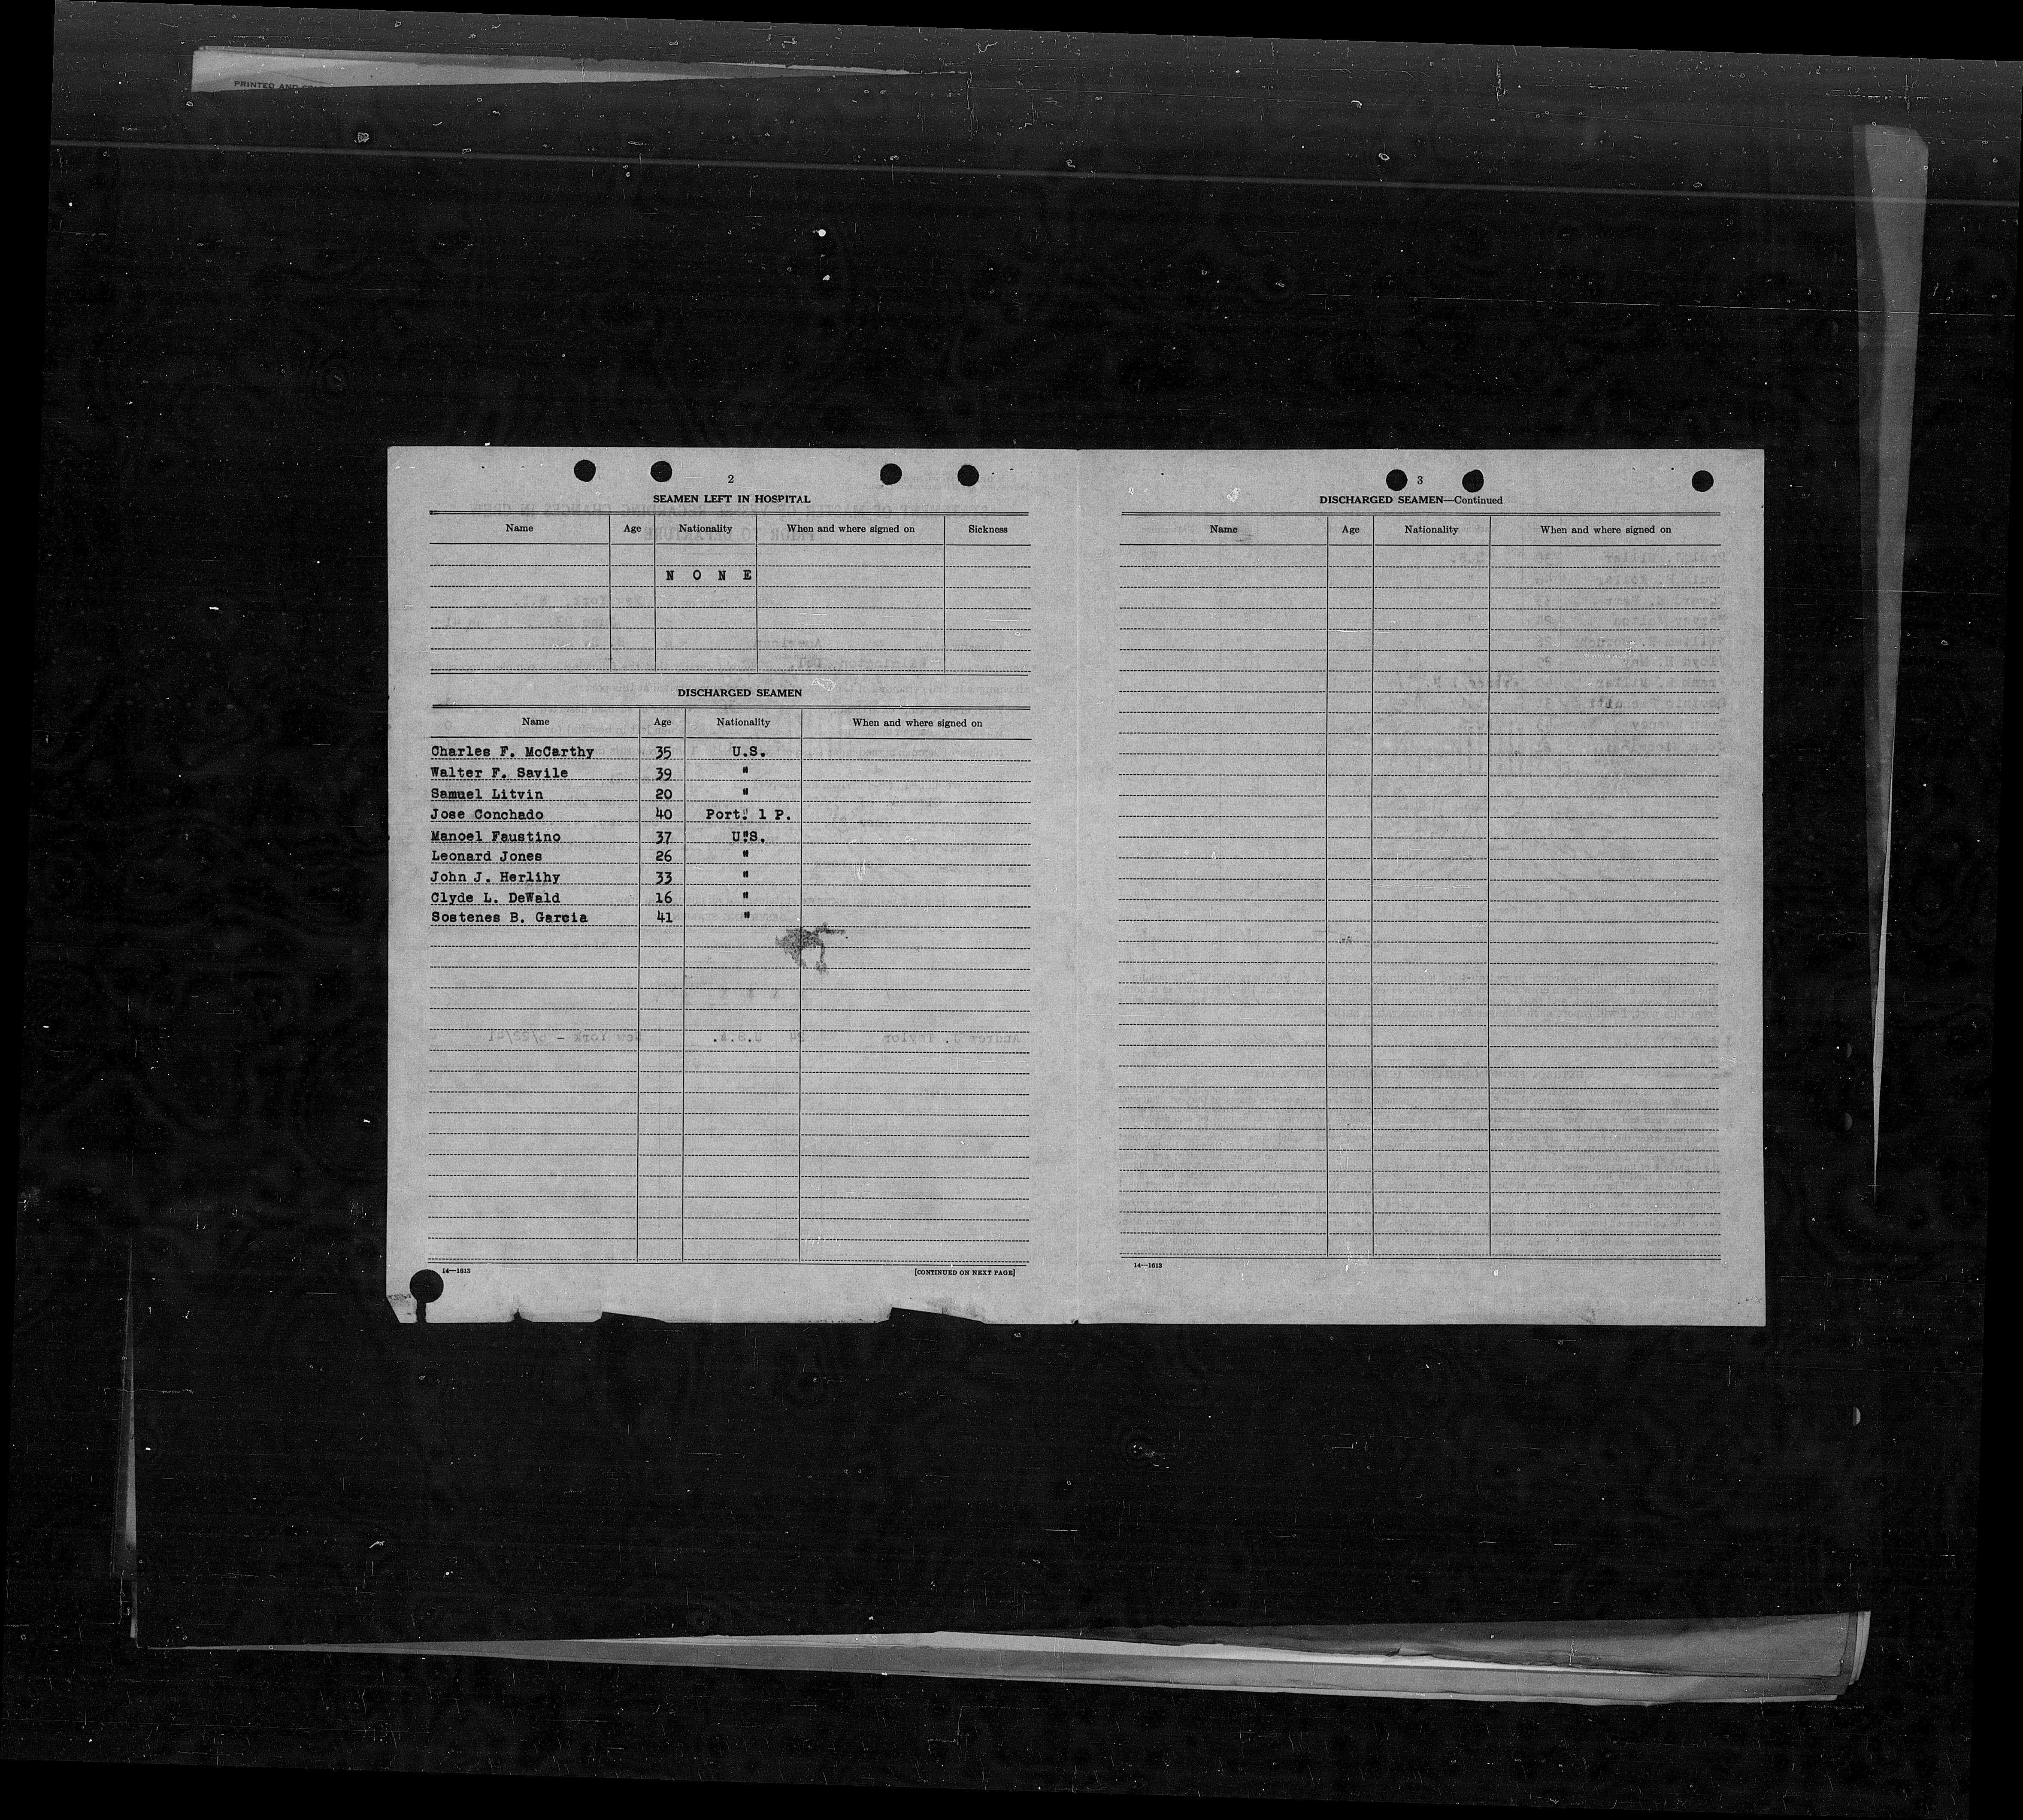 PRINTED AND
2
SEAMEN LEFT IN HOSPITAL
Name Age Nationality When and where signed on Sickness
N O N E
DISCHARGED SEAMEN
Name Age Nationality When and where signed on
Charles F. McCarthy 35 U.S.
Walter F. Savile 39 "
Samuel Litvin 20 "
Jose Conchado 40 Port. 1 P.
Manoel Faustino 37 U.S.
Leonard Jones 26 "
John J. Herlihy 33 "
Clyde L. DeWald 16 "
Sostenes B. Garcia 41 "
14—1613
[CONTINUED ON NEXT PAGE]
3
DISCHARGED SEAMEN—Continued
Name Age Nationality When and where signed on
14—1613